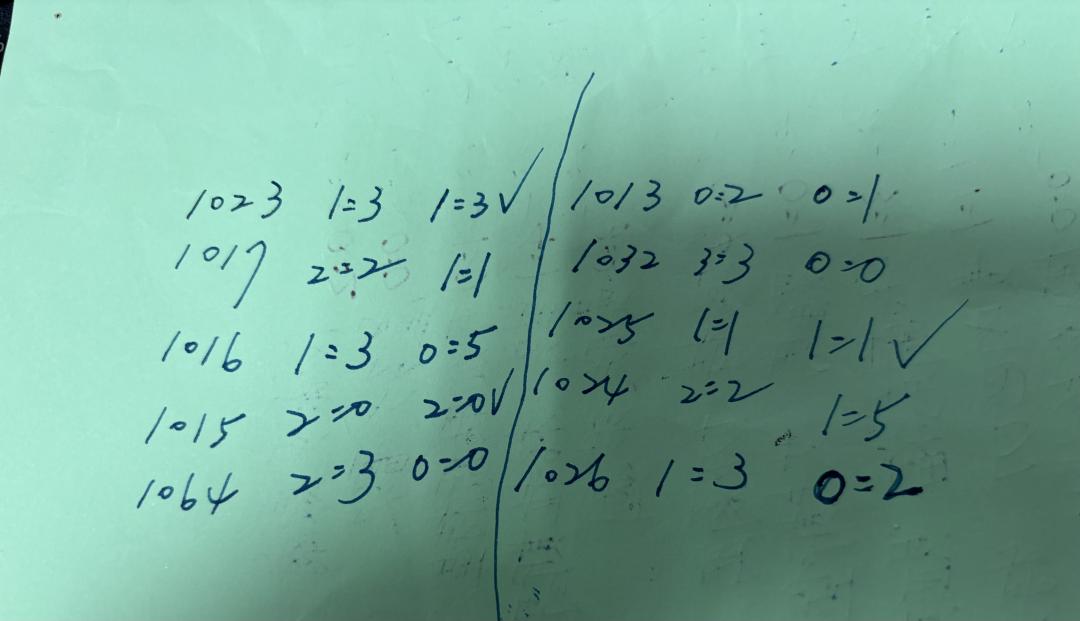 1023 1=3 1=3✓
1017 2=2 1=1
1016 1=3 0=5
1015 2=0 2=0✓
1064 2=3 0=0
1013 0=2 0=1
1032 3=3 0=0
1025 1=1 1=1✓
1024 2=2 1=5
1026 1=3 0=2